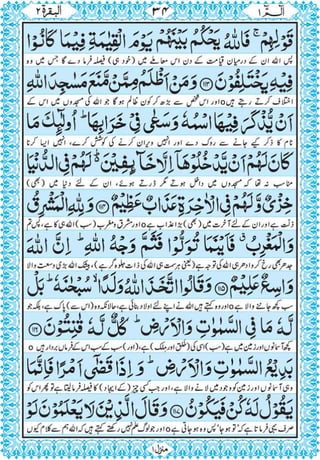 البقرة ٢
٣٤
الٓمّٓ ١
قَوْلِهِمْ ۚ فَاللّٰهُ یَحْكُمُ بَیْنَهُمْ یَوْمَ الْقِیٰمَةِ فِیْمَا كَانُوْا
پس اللہ ان کے درمیان قیامت کے دن اس معاملے میں (خود ہی) فیصلہ فرما دے گا جس میں وہ
فِیْهِ یَخْتَلِفُوْنَ ﴿۱۱۳﴾ وَ مَنْ اَظْلَمُ مِمَّنْ مَّنَعَ مَسٰجِدَ اللّٰهِ
اختلاف کرتے رہتے ہیں o اور اس شخص سے بڑھ کر کون ظالم ہوگا جو اللہ کی مسجدوں میں اس کے
اَنْ یُّذْكَرَ فِیْهَا اسْمُهٗ وَ سَعٰی فِیْ خَرَابِهَا ؕ اُولٰٓئِكَ مَا
نام کا ذکر کیے جانے سے روک دے اور انہیں ویران کرنے کی کوشش کرے، انہیں ایسا کرنا
كَانَ لَهُمْ اَنْ یَّدْخُلُوْهَاۤ اِلَّا خَآىِٕفِیْنَ ؕ۬ لَهُمْ فِی الدُّنْیَا
مناسب نہ تھا کہ مسجدوں میں داخل ہوتے مگر ڈرتے ہوئے، ان کے لئے دنیا میں (بھی)
خِزْیٌ وَّ لَهُمْ فِی الْاٰخِرَةِ عَذَابٌ عَظِیْمٌ ﴿۱۱۴﴾ وَ لِلّٰهِ الْمَشْرِقُ
ذلت ہے اور ان کے لئے آخرت میں (بھی) بڑا عذاب ہے o اور مشرق و مغرب (سب) اللہ ہی کا ہے، پس تم
وَ الْمَغْرِبُ ۗ فَاَیْنَمَا تُوَلُّوْا فَثَمَّ وَجْهُ اللّٰهِ ؕ اِنَّ اللّٰهَ
جدھر بھی رخ کرو ادھر ہی اللہ کی توجہ ہے (یعنی ہر سمت ہی اللہ کی ذات جلوہ گر ہے)، بیشک اللہ بڑی وسعت والا
وَاسِعٌ عَلِیْمٌ ﴿۱۱۵﴾ وَ قَالُوا اتَّخَذَ اللّٰهُ وَلَدًا ۙ سُبْحٰنَهٗ ؕ بَلْ
سب کچھ جاننے والا ہے o اور وہ کہتے ہیں اللہ نے اپنے لئے اولاد بنائی ہے، حالانکہ وہ (اس سے) پاک ہے، بلکہ جو
لَّهٗ مَا فِی السَّمٰوٰتِ وَ الْاَرْضِ ؕ كُلٌّ لَّهٗ قٰنِتُوْنَ ﴿۱۱۶﴾
کچھ آسمانوں اور زمین میں ہے (سب) اسی کی (خلق اور مِلک) ہے، (اور) سب کے سب اس کے فرماں بردار ہیں o
بَدِیْعُ السَّمٰوٰتِ وَ الْاَرْضِ ؕ وَ اِذَا قَضٰۤی اَمْرًا فَاِنَّمَا
وہی آسمانوں اور زمین کو وجود میں لانے والا ہے، اور جب کسی چیز (کے ایجاد) کا فیصلہ فرما لیتا ہے تو پھر اس کو
یَقُوْلُ لَهٗ كُنْ فَیَكُوْنُ ﴿۱۱۷﴾ وَ قَالَ الَّذِیْنَ لَا یَعْلَمُوْنَ لَوْ لَا
صرف یہی فرماتا ہے کہ ’تو ہو جا‘ پس وہ ہو جاتی ہے o اور جو لوگ علم نہیں رکھتے کہتے ہیں کہ اللہ ہم سے کلام کیوں
منزل ۱